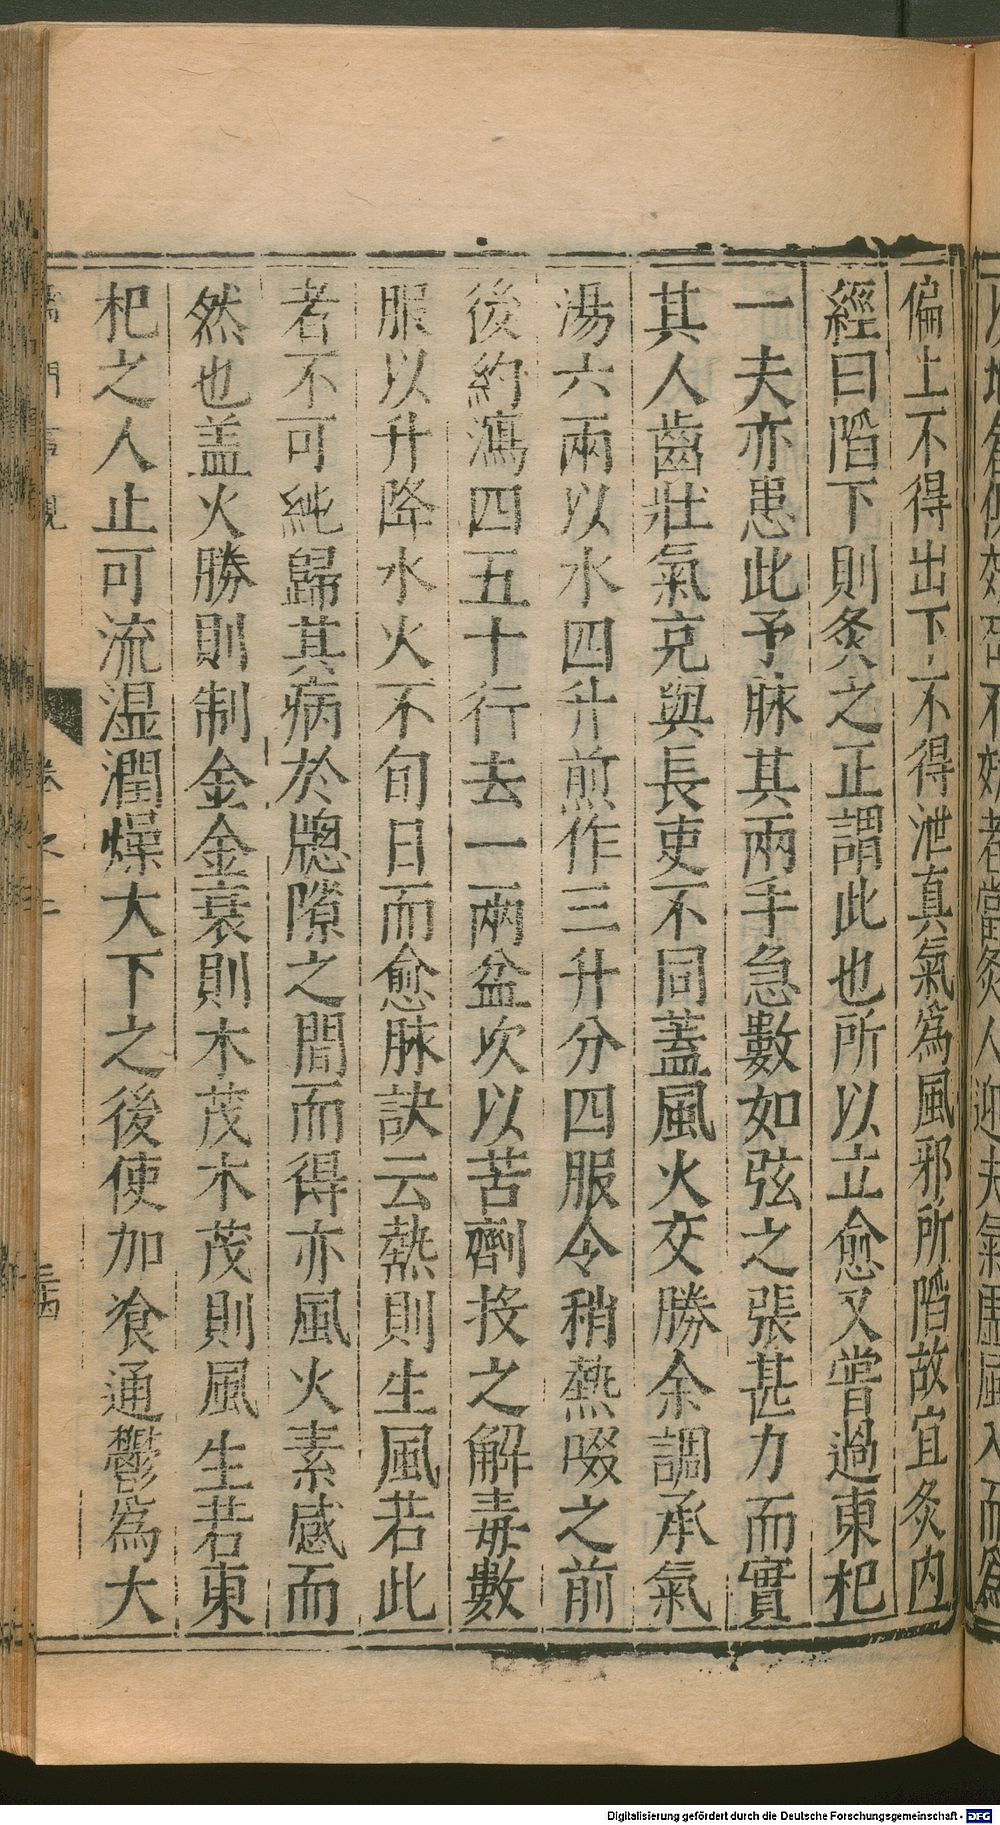 偏上不得出下不得泄真氣爲風邪所陷故宜灸内
經曰陷下則灸之正謂此也所以立愈又嘗過東杞
一夫亦患此予脉其兩手急數如弦之張甚力而實
其人齒壯氣充與長吏不同蓋風火交勝余調承氣
湯六兩以水四升煎作三升分四服令稍熱啜之前
後約瀉四五十行去一兩盆次以苦劑投之解毒數
服以升降水火不旬日而愈脉訣云熱則生風若此
者不可純歸其病於牕隙之間而得亦風火素感而
然也盖火勝則制金金衰則木茂木茂則風生若東
杞之人止可流湿潤燥大下之後使加飡通鬱爲大
門事親
卷之二
三四
Digitalisierung gefördert durch die Deutsche Forschungsgemeinschaft - DFG